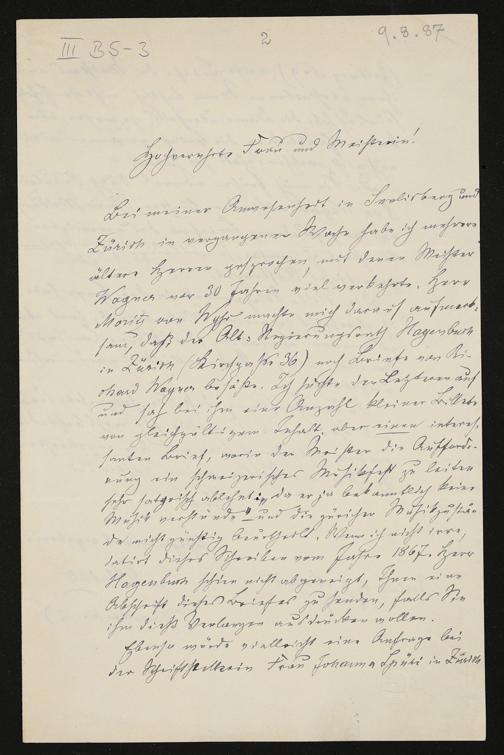 III B5-3
2
9.8.87
Hochverehrte Frau und Meisterin!
Bei meiner Anwesenheit in Seelisberg und
Zürich in vergangener Woche habe ich mehrere
ältere Herren gesprochen, mit denen Meister
Wagner vor 30 Jahren viel verkehrte. Herr
Moritz von Wyss machte mich darauf aufmerk-
sam, daß der Alt-Regierungsrath Hagenbuch
in Zürich (Kirchgasse 36) noch Briefe von Ri-
chard Wagner besäße. Ich suchte den Letzteren auf
und sah bei ihm eine Anzahl kleiner Billets
von gleichgültigem Inhalt, aber einen interes-
santen Brief, worin der Meister die Aufforde-
rung ein schweizerisches Musikfest zu leiten
sehr satyrisch ablehnt „da er ja bekanntlich keine
Musik verstünde" und die züricher Musikzustän-
de nicht günstig beurtheilt. Wenn ich nicht irre,
datirt dieses Schreiben vom Jahre 1867. Herr
Hagenbuch schien nicht abgeneigt, Ihnen eine
Abschrift dieses Briefes zu senden, falls Sie
ihm dieß Verlangen ausdrücken wollen.
Ebenso würde vielleicht eine Anfrage bei
der Schriftstellerin Frau Johanna Spÿri in Zürich